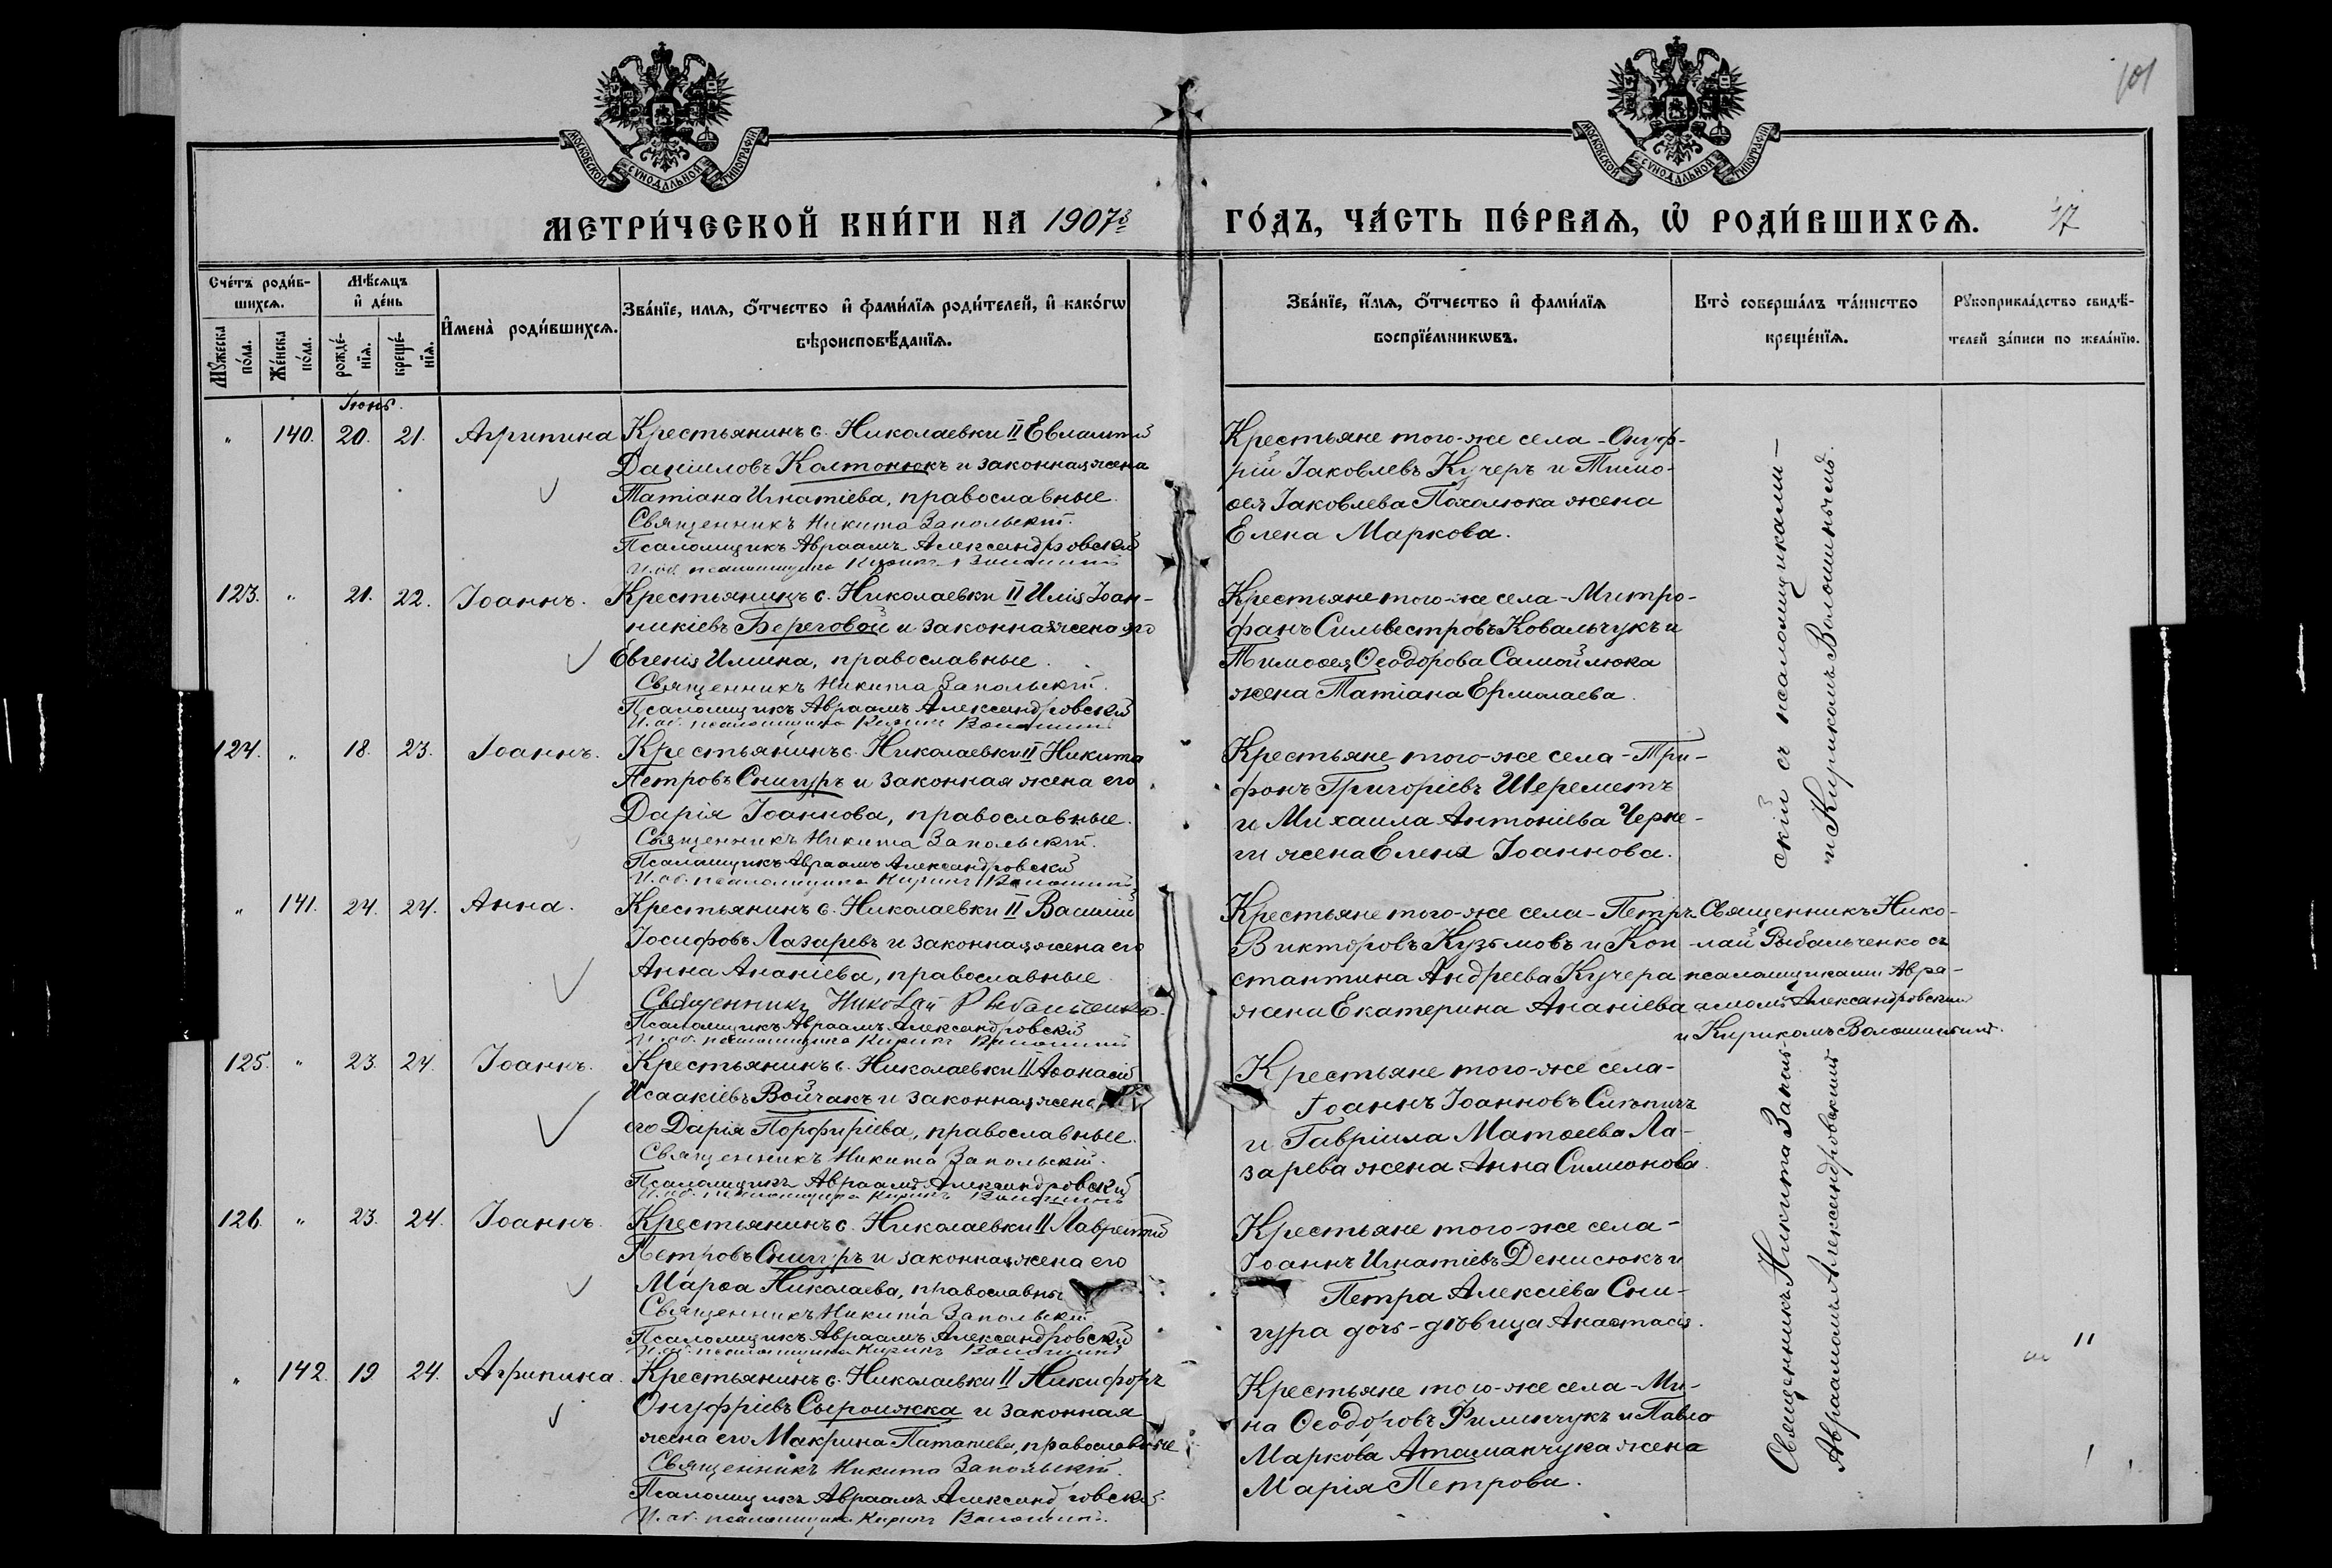 101
МОСКОВСКОЙ СѴНОДАЛЬНОЙ ТИПОГРАФІИ
МОСКОВСКОЙ СѴНОДАЛЬНОЙ ТИПОГРАФІИ
МЕТРИ́ЧЕСКОЙ КНИ́ГИ НА 1907й
ГО́ДЪ, ЧА́СТЬ ПЕ́РВАѦ, Ѡ҆ РОДИ́ВШИХСѦ.
Сче́тъ роди́в-
шихсѧ.
Мꙋ́жеска по́ла.
Же́нска по́ла.
Мѣ́сѧцъ и҆ де́нь
рожде́-
нїѧ.
креще́-
нїѧ.
И҆мена̀ роди́вшихсѧ.
Зва́нїе, имѧ, ѻ҆́тчество и҆ фами́лїѧ роди́телей, и҆ како́гѡ
вѣроисповѣ́данїѧ.
Зва́нїе, и҆́мѧ, ѻ҆́тчество и҆ фами́лїѧ
воспрїе́мникѡвъ.
Кто̀ соверша́лъ та́инство
креще́нїѧ.
Рꙋкоприкла́дство свидѣ́-
телей за́писи по жела́нїю.
Іюнь.
" 140. 20. 21. Агрипина
Крестьянинъ с. Николаевки II Евлампій
Даніиловъ Колтонюкъ и законная жена
Татіана Игнатіева, православные.
Священникъ Никита Запольскій.
Псаломщикъ Авраамъ Александровскій
И. об. псаломщика Кирикъ Волошинъ
Крестьяне того-же села - Онуф-
рій Іаковлевъ Кучеръ и Тимо-
ѳея Іаковлева Пахолюка жена
Елена Маркова.
123. " 21. 22. Іоаннъ.
Крестьянинъ с. Николаевки II Илія Іоан-
никіевъ Береговой и законная жена его
Евгенія Илина, православные.
Священникъ Никита Запольскій.
Псаломщикъ Авраамъ Александровскій
И. об. псаломщика Кирикъ Волошинъ
Крестьяне того-же села - Митро-
фанъ Сильвестровъ Ковальчукъ и
Тимоѳея Ѳеодорова Самойлюка
жена Татіана Ермолаева.
124. " 18. 23. Іоаннъ.
Крестьянинъ с. Николаевки II Никита
Петровъ Снигуръ и законная жена его
Дарія Іоаннова, православные.
Священникъ Никита Запольскій.
Псаломщикъ Авраамъ Александровскій
И. об. псаломщика Кирикъ Волошинъ
Крестьяне того-же села - Три-
фонъ Григоріевъ Шереметъ
и Михаила Антоніева Черне-
ги жена Елена Іоаннова.
" 141. 24. 24. Анна.
Крестьянинъ с. Николаевки II Василій
Іосифовъ Лазаревъ и законная жена его
Анна Ананіева, православные
Священникъ Николай Рыбальченко.
Псаломщикъ Авраамъ Александровскій
И. об. псаломщика Кирикъ Волошинъ
Крестьяне того-же села - Петръ
Викторовъ Кузьмовъ и Кон-
стантина Андреева Кучера
жена Екатерина Ананіева
Священникъ Нико-
лай Рыбальченко съ
псаломщиками Авра-
амомъ Александровскимъ
и Кирикомъ Волошинымъ.
125. " 23. 24. Іоаннъ.
Крестьянинъ с. Николаевки II Аѳанасій
Исаакіевъ Войчакъ и законная жена
его Дарія Порфиріева, православные.
Священникъ Никита Запольскій.
Псаломщикъ Авраамъ Александровскій
И. об. псаломщика Кирикъ Волошинъ
Крестьяне того-же села -
Іоаннъ Іоанновъ
и Гавріила Матѳеева Ла-
зарева жена Анна Симеонова.
126. " 23. 24. Іоаннъ.
Крестьянинъ с. Николаевки II Лаврентій
Петровъ Снигуръ и законная жена его
Марѳа Николаева, православны
Священникъ Никита Запольскій
Псаломщикъ Авраамъ Александровскій
И. об. псаломщика Кирикъ Волошинъ
Крестьяне того-же села -
Іоаннъ Игнатіевъ Денисюкъ и
Петра Алексіева Сни-
гура дочь-дѣвица Анастасія.
" 142. 19 24. Агрипина.
Крестьянинъ с. Николаевки II Никифоръ
Онуфріевъ Сыроижка и законная
жена его Макрина Патапіева, православные
Священникъ Никита Запольскій.
Псаломщикъ Авраамъ Александровскій.
И. об. псаломщика Кирикъ Волошинъ.
Крестьяне того-же села - Ми-
на Ѳеодоровъ Филипчукъ и Павла
Маркова Атаманчука жена
Марія Петрова.
Священникъ Никита Заполь-
скій съ псаломщиками -
Авраамомъ Александровскимъ
и Кирикомъ Волошинымъ.